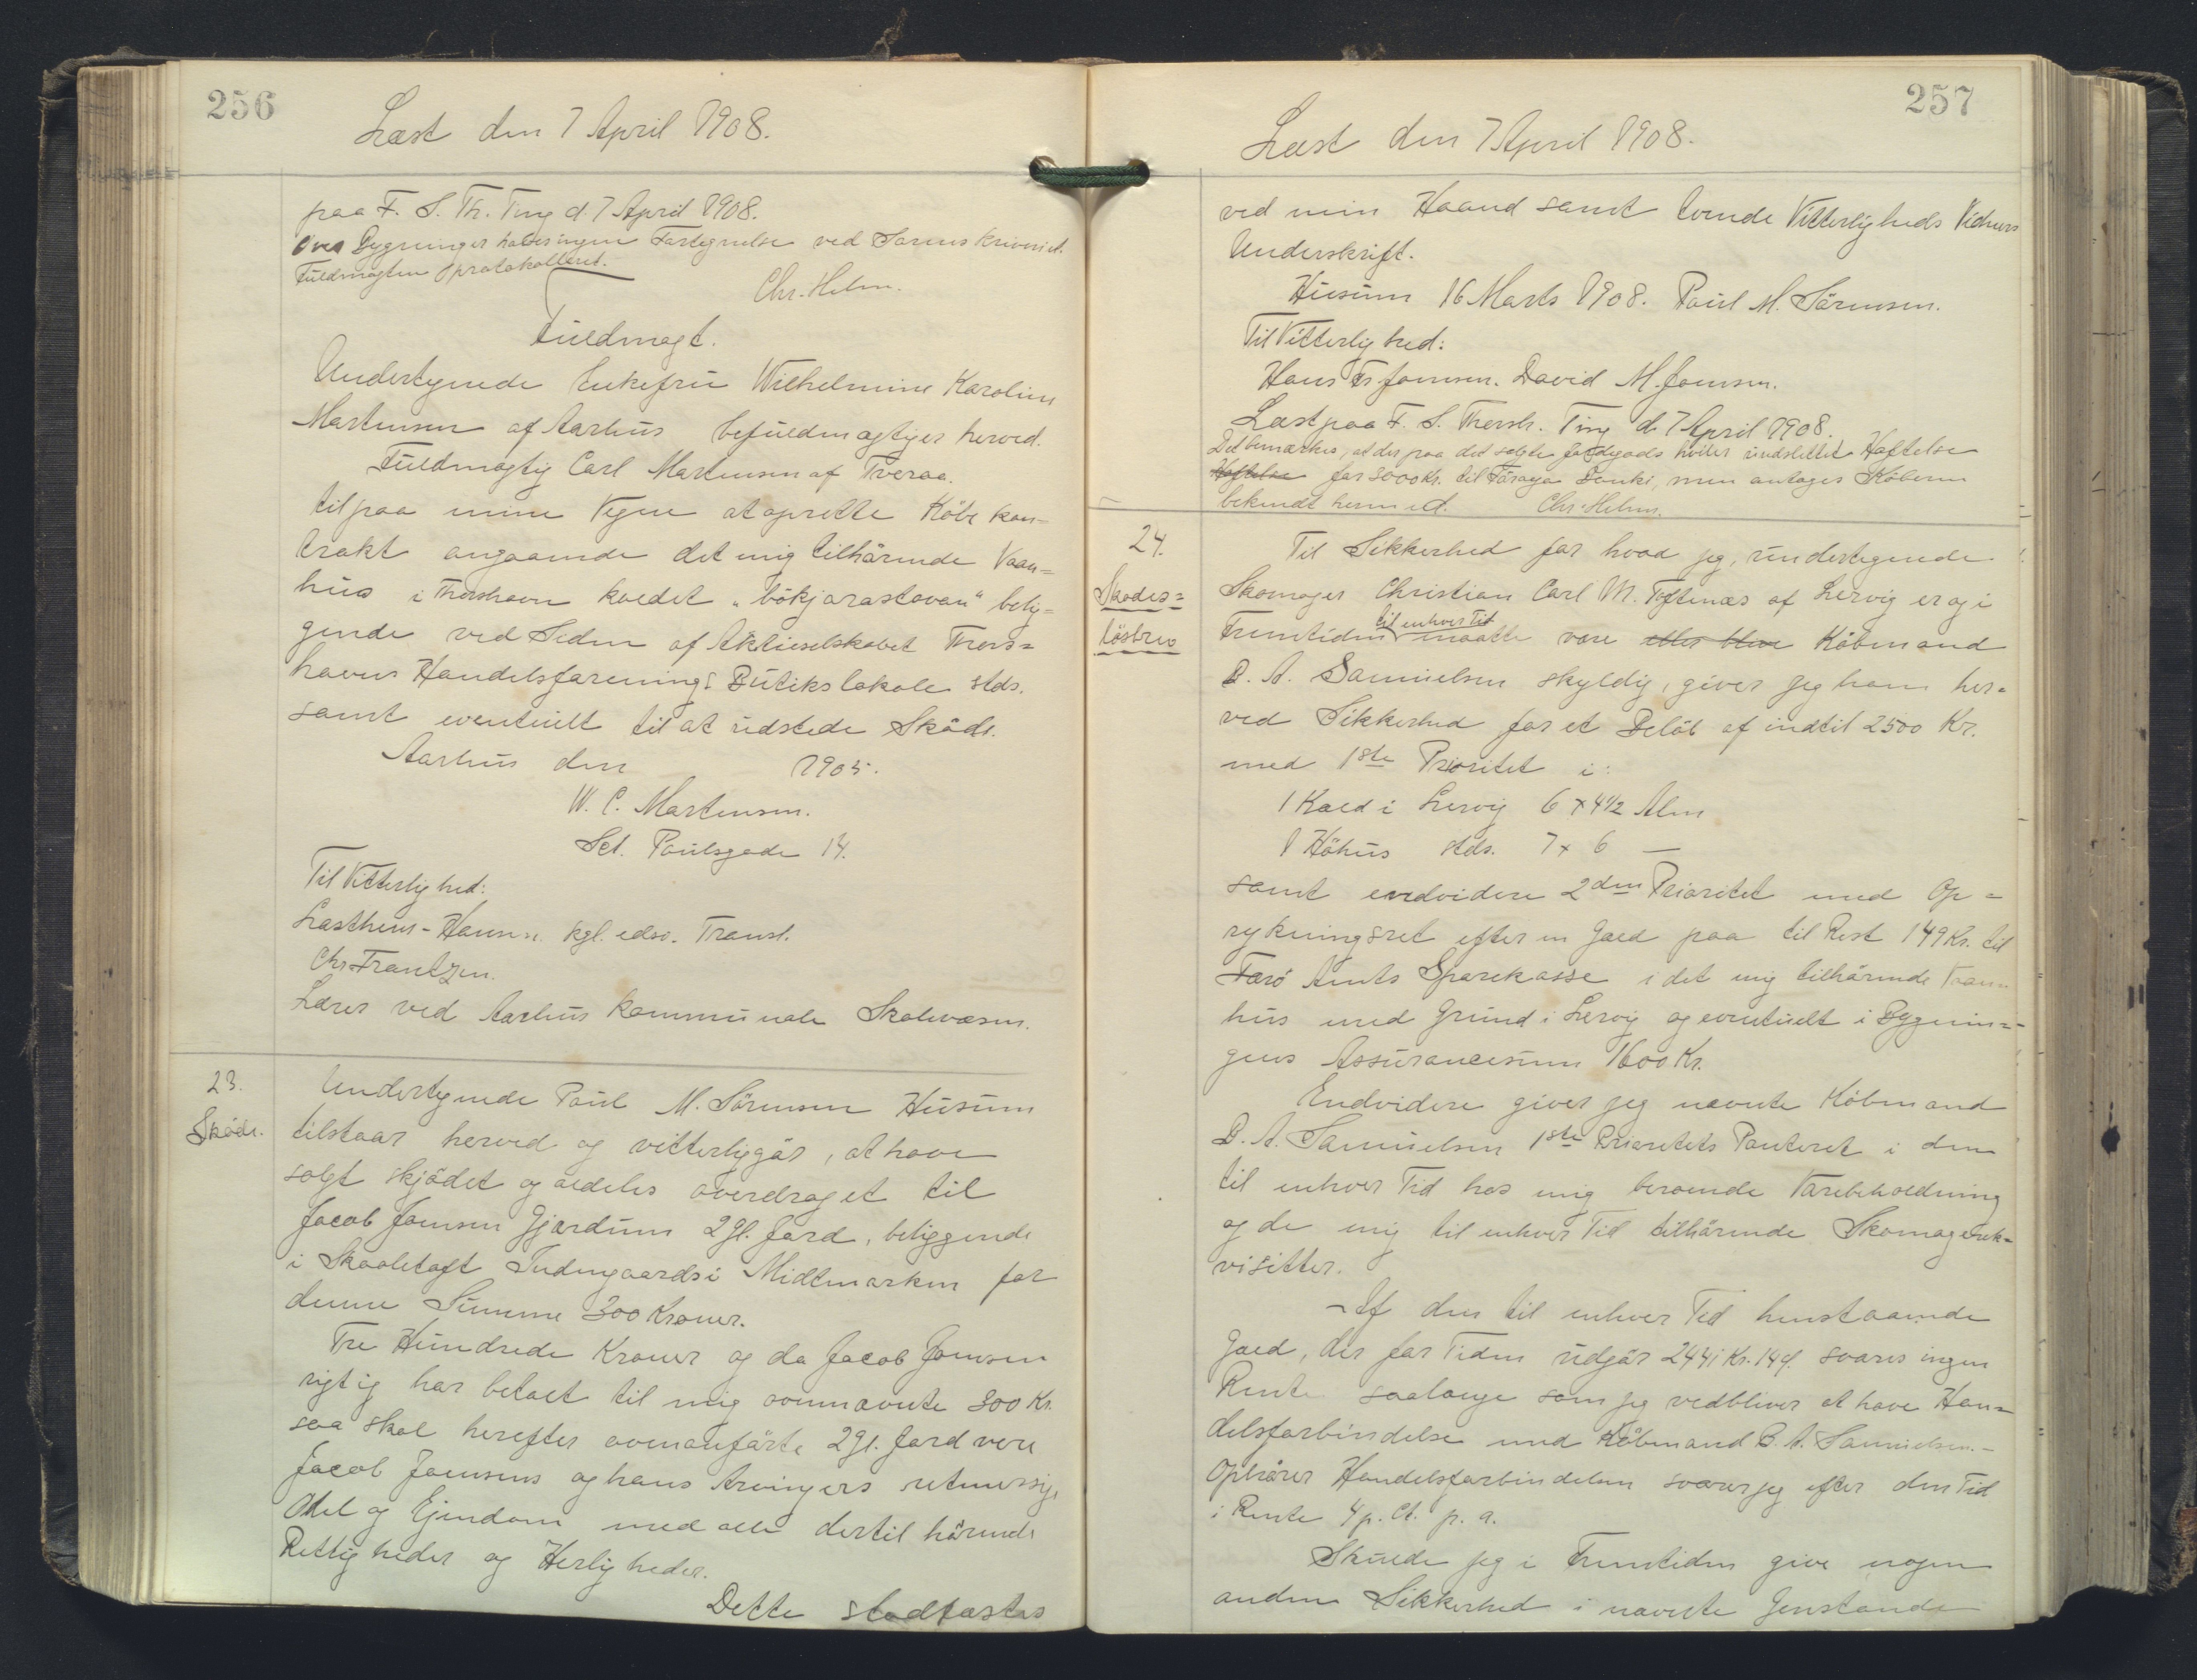 256
Læst den 7 April 1908.
paa F. S. Th. Ting d. 7 April 1908.
Over Bygninger haves ingen Fortegnelse ved Sorenskriveriet.
Fuldmagten protokolleret.
Chr. Helm.
Fuldmagt.
Undertegnede Enkefru Wilhelmine Karoline
Martensen af Aarhus befuldmægtiger herved
Fuldmægtig Carl Martensen af Tveraa
til paa mine Vegne at oprette Köbekon=
trakt angaaende det mig tilhörende Vaan=
hus i Thorshavn kaldet "bökjarastovan" belig=
gende ved Siden af Aktieselskabet Thors=
havns Handelsforenings Butikslokale stds.
samt eventuelt til at udstede Sköde.
Aarhus den 1905.
W. C. Martensen.
Sct. Paulsgade 14.
Til Vitterlighed:
Lasthein-Hansen kgl. edsv. Transl.
Chr. Frantzen.
Lærer ved Aarhus kommunale Skolevæsen.
23.
Sköde.
Undertegnede Poul M. Sörensen Husum
tilstaar herved og vitterliggör, at have
solgt skjödet og aldeles overdraget til
Jacob Joensen Gjærdum 2 gl. Jord, beliggende
i Skaaletoft Sudurgaards i Midtmarken for
denne Summe 300 Kroner.
Tre Hundrede Kroner og da Jacob Joensen
rigtig har betalt til mig ovennævnte 300 Kr.
saa skal herefter ovenanförte 2 Gl. Jord være
Jacob Joensens og hans Arvingers retmessige
Odel og Ejendom med alle dertil hörende
Rettigheder og Herligheder.
Dette stadfæstes
257
Læst den 7 April 1908.
ved min Haand samt tvende Vitterligheds Vidners
Underskrift.
Husum 16 Marts 1908. Poul M. Sörensen.
Til Vitterlighed:
Hans Fr. Joensen. David M. Joensen.
Læst paa F. S. Thorsh. Ting d. 7 April 1908.
Det bemærkes, at der paa det solgte Jordegods hviler indslettet Hæftelse
Hæftelse for 3000 Kr. til Föroya Banki, men antages Köberen
bekendt hermed. Chr. Helm.
24.
Skades=
lösbrev
Til Sikkerhed for hvad jeg, undertegnede
Skomager Christian Carl M. Toftenæs af Lervig er og i
Fremtiden til enhver Tid maatte være eller blive Köbmand
B. A. Samuelsen skyldig, giver jeg ham her=
ved Sikkerhed for et Belöb af indtil 2500 Kr.
med 1ste Prioritet i:
1 Kald i Lervig 6 x 4 1/2 Alen
1 Höhus stds. 7 x 6 —
samt endvidere 2den Prioritet med Op=
rykningsret efter en Gæld paa til Rest 149 Kr. til
Færö Amts Sparekasse i det mig tilhörende Vaan=
hus med Grund i Lervig og eventuelt i Bygnin=
gens Assurancesum 1600 Kr.
Endvidere giver jeg nævnte Köbmand
B. A. Samuelsen 1ste Prioritets Panteret i den
til enhver Tid hos mig beroende Varebeholdning
og de mig til enhver Tid tilhörende Skomagerrek=
visitter.
Af den til enhver Tid henstaaende
Gæld, der for Tiden udgör 2441 Kr. 14 Ø. svares ingen
Rente saalænge som jeg vedbliver at have Han=
delsforbindelse med Köbmand B. A. Samuelsen.-
Ophörer Handelsforbindelsen svarer jeg efter den Tid
i Rente 4 p. Ct. p. a.
Skulde jeg i Fremtiden give nogen
anden Sikkerhed i nævnte Genstande